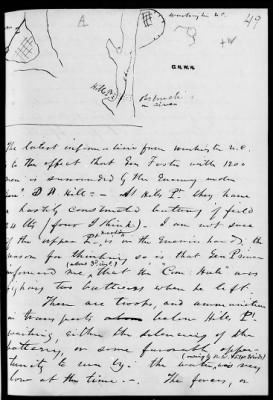 49
A
Washington N.C.
Hills Pt
Obstructions
in river
The latest information from Washington N.C.
to the effect that Gen Foster with 1200
men is surrounded by the Enemy under
Genl D H Hill - At Hills Pt they have
a hastily constructed battery of field
(four I think). I am not sure
if the upper battery is in the Enemies hands, the
reason for thinking so is that Gen Prince
informed me, that the "Com: Hull" was
fighting two batteries when he left.
There are troops, and ammunition
in transports below Hills Pt
waiting either the silencing of the
battery, or some favorable oppor-
tunity to run by: the water was very
low at the time -. The forces, on